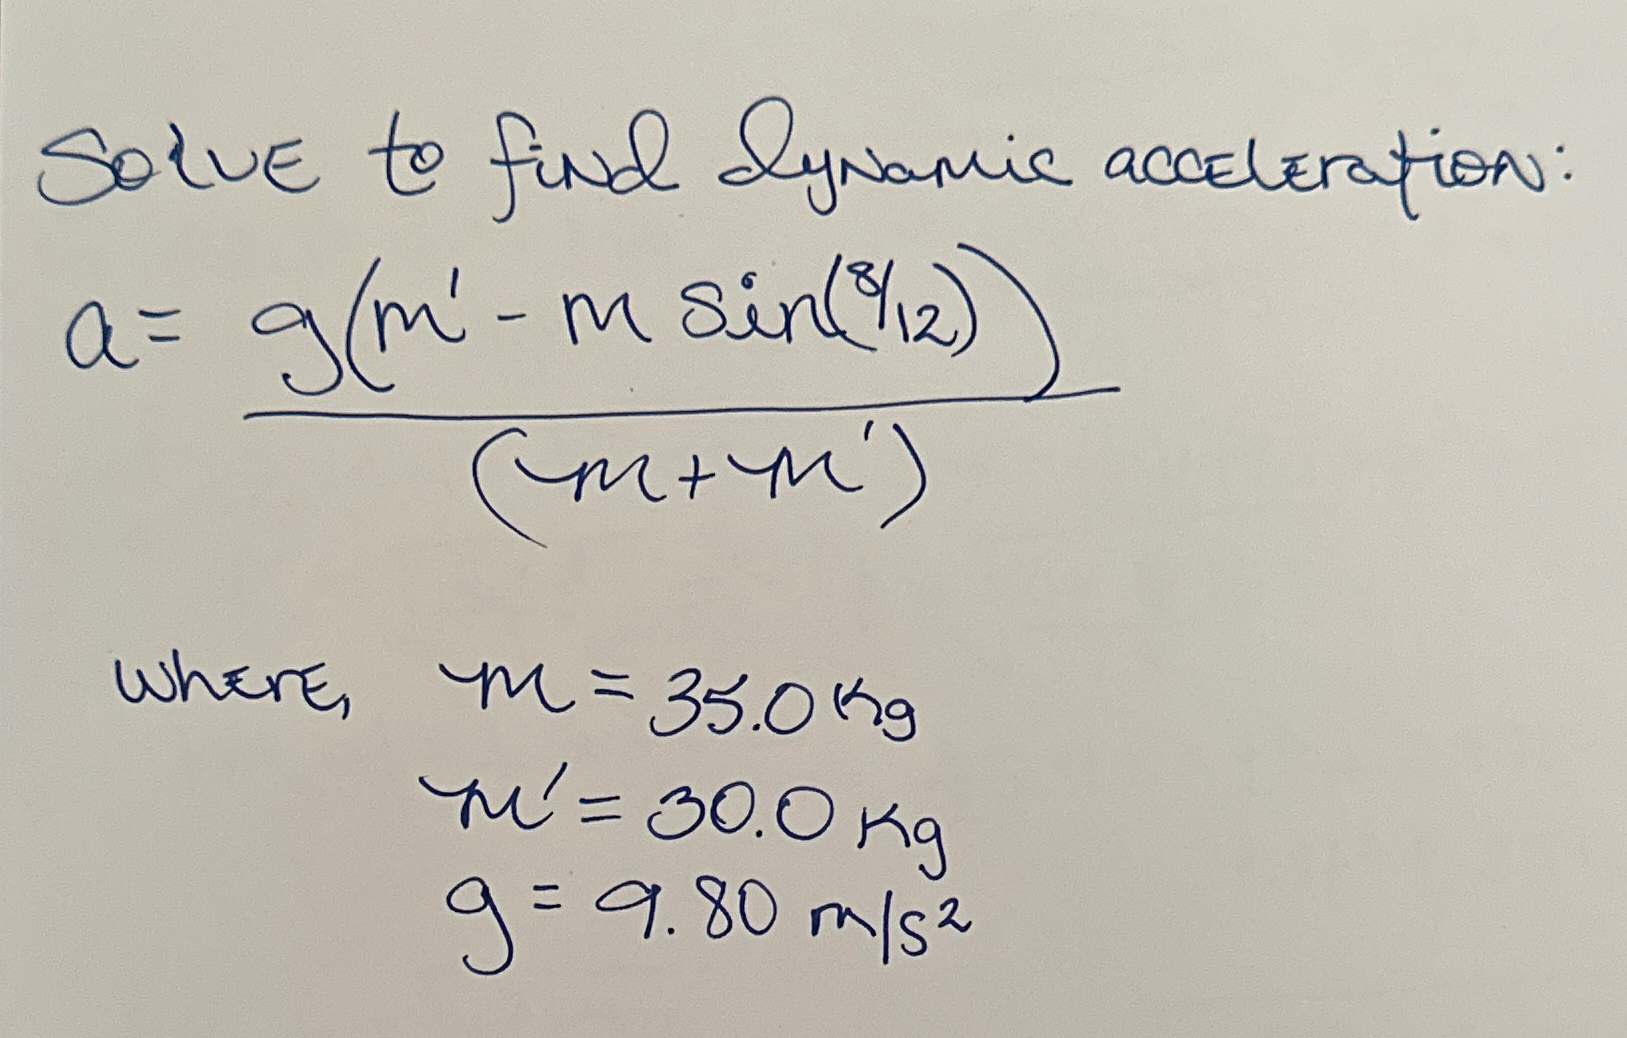 Solve to find dynamic acceleration:
a = g(m' - m sin(8/12))
(m + m')
where, m = 35.0 kg
m' = 30.0 kg
g = 9.80 m/s²